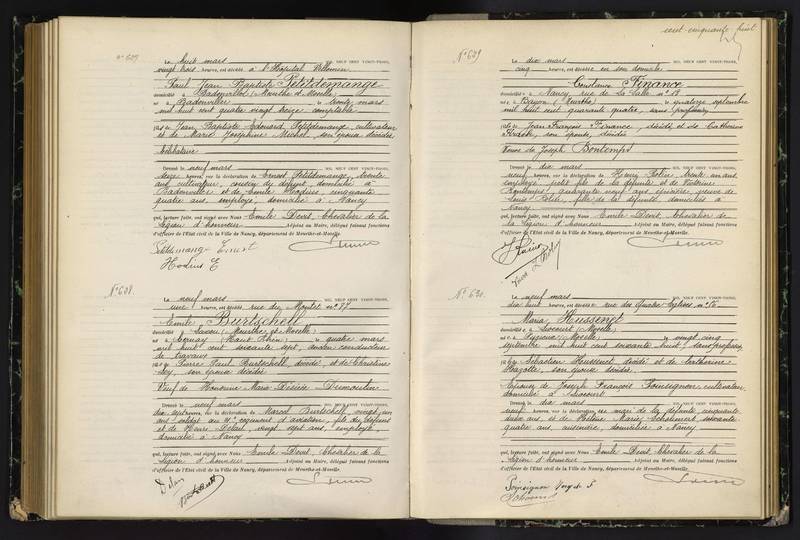 N° 627
Le huit mars MIL NEUF CENT VINGT-TROIS,
vingt trois heures, est décédé à l'Hôpital Villemin
Paul Jean Baptiste Petitdemange
domicilié à Badonviller (Meurthe et Moselle)
né à Badonviller le trente mars
mil huit cent quatre vingt treize comptable
fils de Jean Baptiste Edouard Petitdemange, cultivateur
et de Marie Joséphine Michel, son épouse décédés
Célibataire
Dressé le neuf mars MIL NEUF CENT VINGT-TROIS,
seize heures, sur la déclaration de Ernest Petitdemange, trente
ans cultivateur, cousin du défunt, domicilié à
Badonviller et de Emile Hodius, cinquante
quatre ans, employé, domicilié à Nancy
qui, lecture faite, ont signé avec Nous Emile Devit, Chevalier de la
Légion d'honneur Adjoint au Maire, délégué faisant fonctions
d'officier de l'Etat civil de la Ville de Nancy, département de Meurthe-et-Moselle.
Petitdemange Ernest
Hodius E
N° 628
Le neuf mars MIL NEUF CENT VINGT-TROIS,
une heures, est décédé rue du Montet n° 77
Emile Burtschell
domicilié à (Meurthe et Moselle)
né à Cernay (Haut Rhin) le quatre mars
mil huit cent soixante sept, ancien conducteur
de travaux
fils de Pierre Paul Burtschell, décédé, et de Christine
son épouse décédée
Veuf de Honorine Marie Désirée Dumoulin
Dressé le neuf mars MIL NEUF CENT VINGT-TROIS,
dix sept heures, sur la déclaration de Marcel Burtschell vingt un
ans soldat au régiment d'aviation, fils du défunt
et de Henri Delau, vingt sept ans, employé,
domicilié à Nancy
qui, lecture faite, ont signé avec Nous Emile Devit, Chevalier de la
Légion d'honneur Adjoint au Maire, délégué faisant fonctions
d'officier de l'Etat civil de la Ville de Nancy, département de Meurthe-et-Moselle.
cent cinquante huit
N° 629
Le dix mars MIL NEUF CENT VINGT-TROIS,
cinq heures, est décédée en son domicile
Constance Finance
domiciliée à Nancy rue de la n° 18
née à Bayon (Meurthe) le quatorze septembre
mil huit cent quarante quatre, sans profession
fille de Jean François Finance, décédé, et de Catherine
son épouse, décédée
Veuve de Joseph Bontemps
Dressé le dix mars MIL NEUF CENT VINGT-TROIS,
neuf heures, sur la déclaration de Henry trente un ans,
employé, petit fils de la défunte et de Victorine
Bontemps, quarante neuf ans épicière, veuve de
Louis fille de la défunte domiciliés à
Nancy
qui, lecture faite, ont signé avec Nous Emile Devit, Chevalier de
la Légion d'honneur Adjoint au Maire, délégué faisant fonctions
d'officier de l'Etat civil de la Ville de Nancy, département de Meurthe-et-Moselle.
N° 630
Le neuf mars MIL NEUF CENT VINGT-TROIS,
dix huit heures, est décédée rue des Quatre Eglises n°
Maria Hussenet
domiciliée à Liocourt (Moselle)
née à (Moselle) le vingt cinq
septembre mil huit cent soixante sans profession
fille de Sébastien Hussenet décédé et de Catherine
son épouse décédée
Epouse de Joseph François Poinsignon cultivateur
domicilié à Liocourt
Dressé le dix mars MIL NEUF CENT VINGT-TROIS,
neuf heures, sur la déclaration de mari de la défunte, cinquante
ans, et de Marie soixante
quatre ans, domiciliée à Nancy
qui, lecture faite, ont signé avec Nous Emile Devit, Chevalier de la
Légion d'honneur Adjoint au Maire, délégué faisant fonctions
d'officier de l'Etat civil de la Ville de Nancy, département de Meurthe-et-Moselle.
Poinsignon